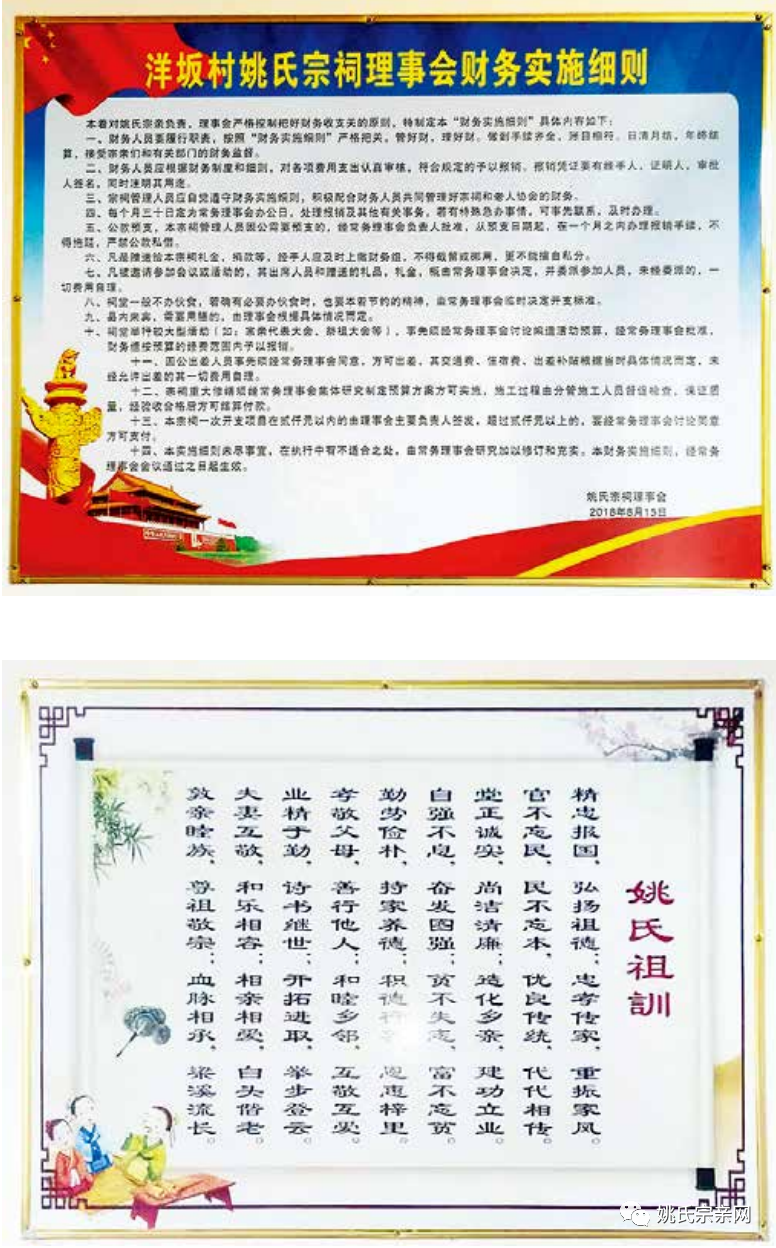 洋坂村姚氏宗祠理事会财务实施细则
本着对姚氏宗亲负责，理事会严格控制把好财务收支关的原则，特制定本“财务实施细则”具体内容如下：
一、财务人员要履行职责，按照“财务实施细则”严格把关，管好财，理好财。做到手续齐全，账目相符。日清月结，年终结
算，接受宗亲们和有关部门的财务监督。
二、财务人员应根据财务制度和细则，对各项费用支出认真审核，符合规定的予以报销。报销凭证要有经手人，证明人，审批
人签名，同时注明其用途。
三、宗祠管理人员应自觉遵守财务实施细则，积极配合财务人员共同管理好宗祠和老人协会的财务。
四、每个月三十日定为常务理事会办公日，处理报销及其他有关事务，若有特殊急办事情，可事先联系，及时办理。
五、公款预支，本宗祠管理人员因公需要预支的，经常务理事会负责人批准，从预支日期起，在一个月之内办理报销手续，不
得拖延，严禁公款私借。
六、凡是赠送给本宗祠礼金，捐款等，经手人应及时上缴财务组，不得截留或挪用，更不能擅自私分。
七、凡被邀请参加会议或活动的，其出席人员和赠送的礼品，礼金，概由常务理事会决定，并委派参加人员，未经委派的，一
切费用自理。
八、祠堂一般不办伙食，若确有必要办伙食时，也要本着节约的精神，由常务理事会临时决定开支标准。
九、县内来宾，需要用膳的，由理事会根据具体情况而定。
十、祠堂举行较大型活动（如：宗亲代表大会、祭祖大会等），事先须经常务理事会讨论编造活动预算，经常务理事会批准，
财务债按预算的经费范围内予以报销。
十一、因公出差人员事先须经常务理事会同意，方可出差，其交通费、住宿费、出差补贴根据当时具体情况而定，未
经允许出差的其一切费用自理。
十二、宗祠重大修缮须经常务理事会集体研究制定预算方案方可实施，施工过程由分管施工人员督促检查，保证质
量，经验收合格后方可结算付款。
十三、本宗祠一次开支项目在贰仟元以内的由理事会主要负责人签发，超过贰仟元以上的，要经常务理事会讨论同意
方可支付。
十四、本实施细则未尽事宜，在执行中有不适合之处，由常务理事会研究加以修订和充实。本财务实施细则，经常务
理事会会议通过之日起生效。
姚氏宗祠理事会
2018年8月15日
姚氏祖訓
精忠报国，弘扬祖德，忠孝传家，重振家风。
官不忘民，民不忘本，优良传统，代代相传。
堂正诚实，尚洁清廉，造化乡亲，建功立业。
自强不息，奋发图强，贫不失志，富不忘贫。
勤劳俭朴，持家养德，积德，恩惠梓里。
孝敬父母，善行他人，和睦乡邻，互敬互爱。
业精于勤，诗书继世，开拓进取，举步登云。
夫妻互敬，和乐相容，相亲相爱，白头偕老。
敦亲睦族，尊祖敬宗，血脉相承，梁溪流长。
姚氏宗亲网